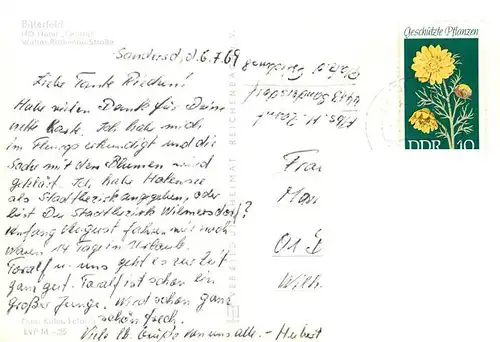 Bitterfeld
HO-Hotel "Central"
Walther-Rathenau-Straße
Sandersd., d. 6.7.69
Liebe Tante Riechen!
Habe vielen Dank für Deine
nette Karte. Ich habe mich
im Flugs erkundigt und die
Sache mit den Blumen wird
geklärt. Ich habe Halensee
als Stadtbezirk angegeben, oder
bist Du Stadtbezirk Wilmersdorf?
Anfang August fahren wir noch
14 Tage in Urlaub.
Toralf u. uns geht es zur Zeit
ganz gut. Toralf ist schon ein
großer Junge. Wird schon ganz
schön frech.
Viele lb. Grüße von uns allen. - Herbert
Frau
01
Wilh
Geschützte Pflanzen
DDR 10
4413 Sandersdorf
VEB BILD UND HEIMAT REICHENBACH I. V.